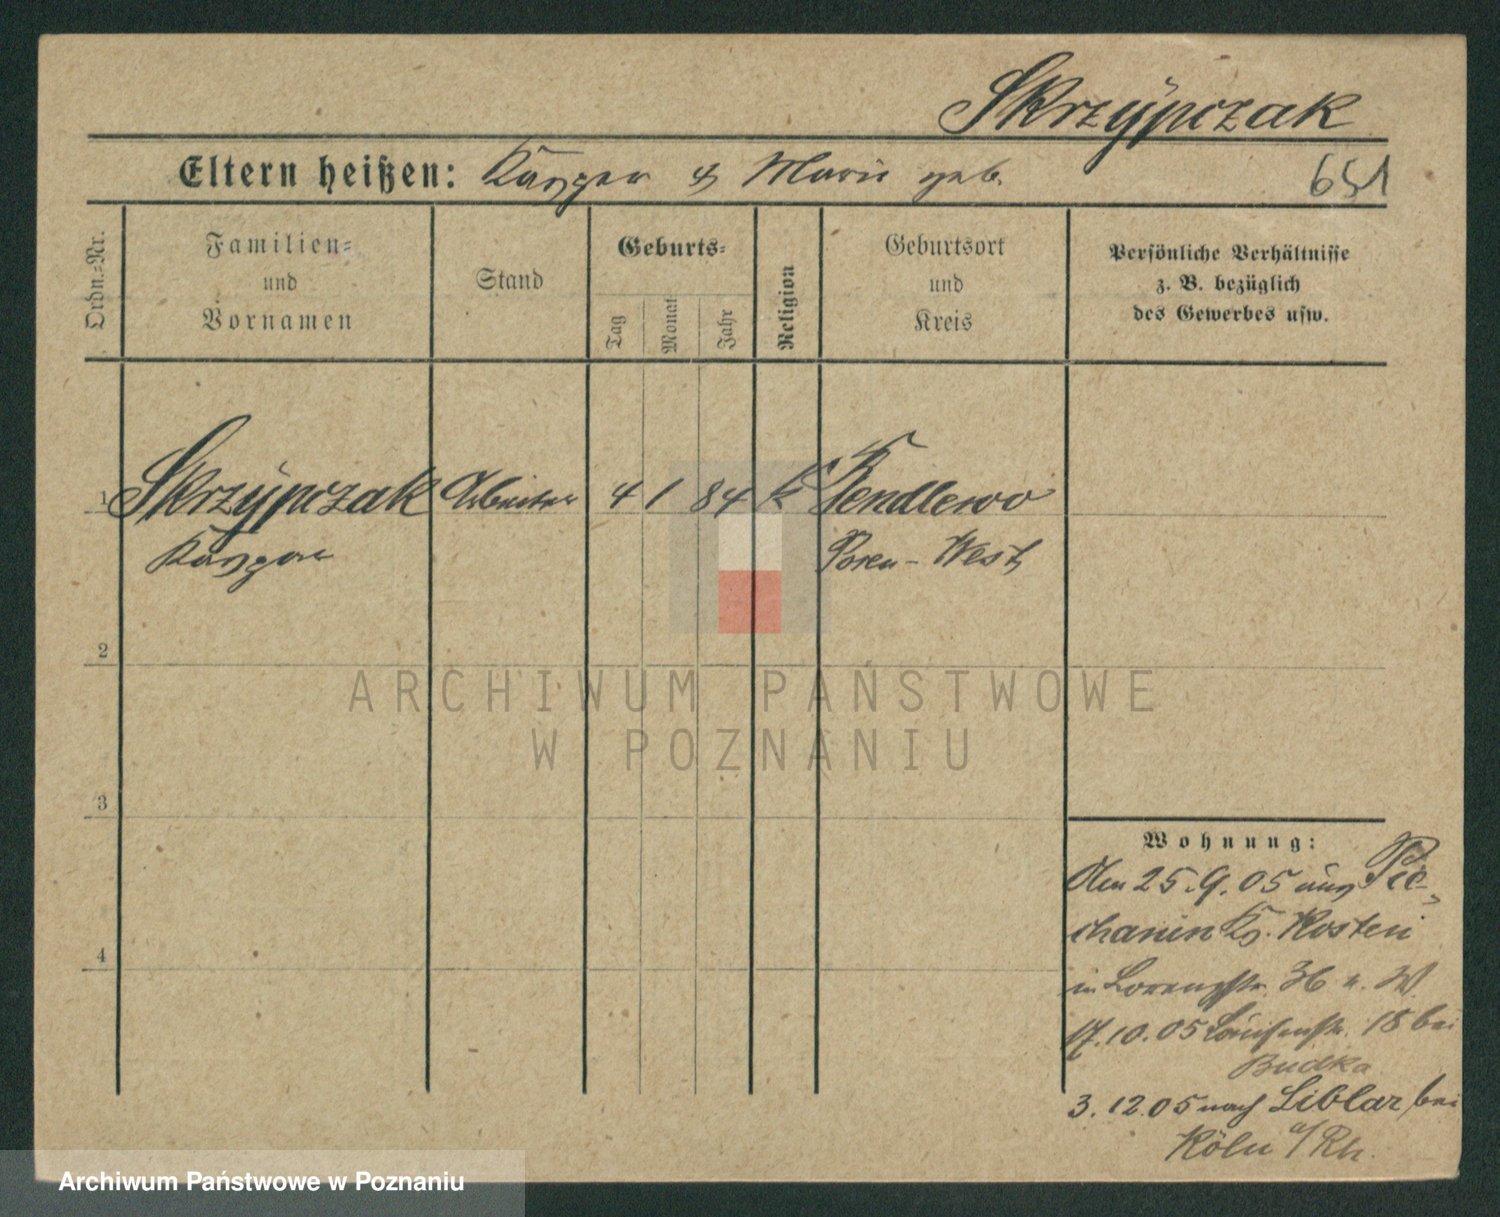 Skrzypczak
Eltern heißen: Kasper & Marie geb.
651
Ordn.=Nr.
Familien=
und
Vornamen
Stand
Geburts=
Tag
Monat
Jahr
Religion
Geburtsort
und
Kreis
Persönliche Verhältnisse
z. B. bezüglich
des Gewerbes usw.
1 Skrzypczak Arbeiter 4 1 84 k
Kasper
Posen-West
2
3
4
Wohnung:
Den 25.9.05 aus Pie-
chanin Kr. Kosten
in Lorenzstr. 36 b.
17.10.05 Louisenstr. 18 bei
Budka
3.12.05 nach Liblar bei
Köln a/Rh.
ARCHIWUM PAŃSTWOWE
W POZNANIU
Archiwum Państwowe w Poznaniu